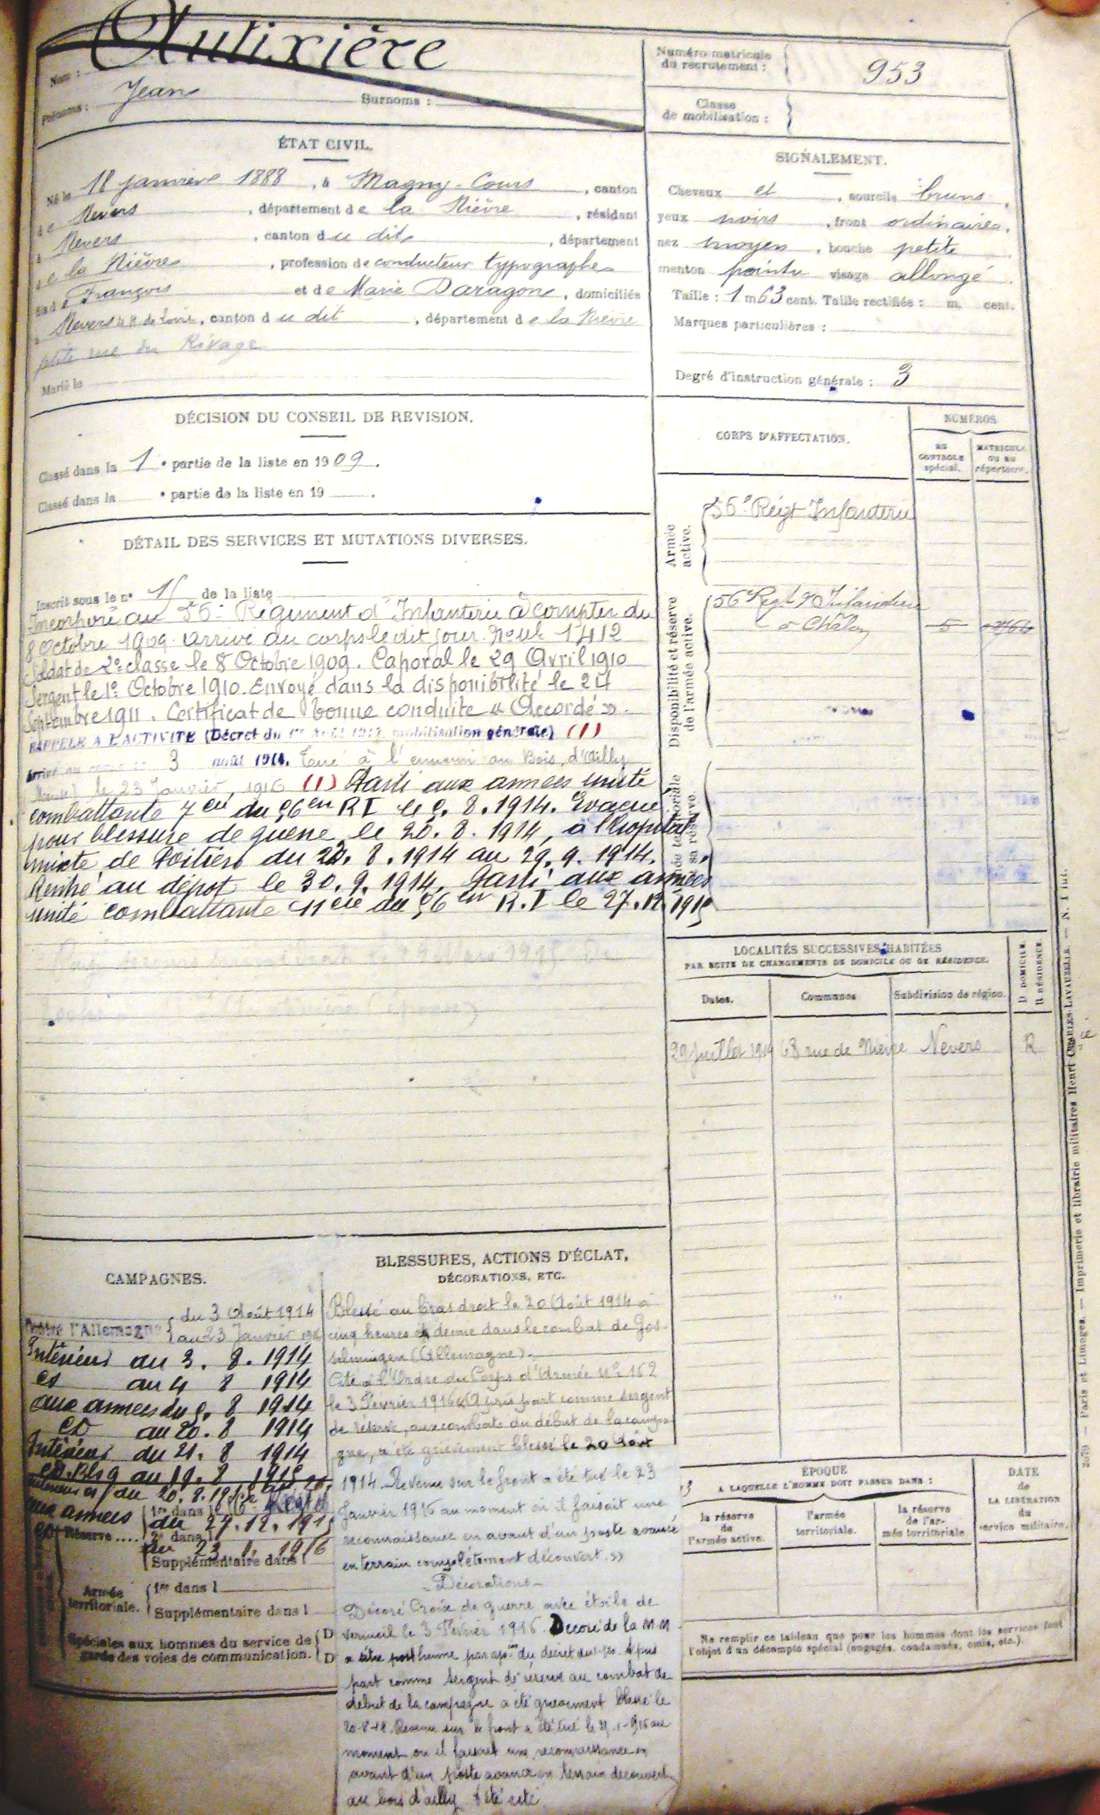 Nom : Autixière
Prénoms : Jean Surnoms :
Numéro matricule du recrutement : 953
Classe de mobilisation :
ÉTAT CIVIL.
Né le 18 janvier 1888, à Magny-Cours, canton
de Nevers, département de la Nièvre, résidant
à Nevers, canton du dit, département
de la Nièvre, profession de conducteur typographe
fils de François et de Marie Daragon, domiciliés
à Nevers, canton du dit, département de la Nièvre
petite rue du Rivage
Marié le
SIGNALEMENT.
Cheveux et, sourcils bruns,
yeux noirs, front ordinaire,
nez moyen, bouche petite
menton pointu visage allongé.
Taille : 1 m 63 cent. Taille rectifiée : m. cent.
Marques particulières :
Degré d'instruction générale : 3
DÉCISION DU CONSEIL DE REVISION.
Classé dans la 1e partie de la liste en 1909.
Classé dans la e partie de la liste en 19 .
DÉTAIL DES SERVICES ET MUTATIONS DIVERSES.
Inscrit sous le n° de la liste
Incorporé au 56e Régiment d'Infanterie à compter du
8 Octobre 1909 arrivé au corps le dit jour. N° Mle 1412
Soldat de 2e classe le 8 Octobre 1909. Caporal le 29 Avril 1910
Sergent le 1er Octobre 1910. Envoyé dans la disponibilité le 24
Septembre 1911. Certificat de bonne conduite « Accordé ».
RAPPELÉ A L'ACTIVITÉ (Décret du mobilisation générale) (1)
Arrivé au corps le 3 août 1914. Tué à l'ennemi au Bois d'Ailly
(Meuse) le 23 janvier 1916 (1) Parti aux armées unité
combattante 7e Cie du 56em RI le 5.8.1914. Evacué
pour blessure de guerre le 20.8.1914, à l'hopital
mixte de Poitiers du 22.8.1914 au 29.9.1914.
Rentré au dépot le 30.9.1914. Parti aux armées
unité combattante 11e Cie du 56em R.I le 27.12.1915
CORPS D'AFFECTATION.
NUMÉROS
AU CONTROLE spécial.
MATRICULE OU AU répertoire.
Armée active.
56e Régt Infanterie
Disponibilité et réserve de l'armée active.
56e Régt d'Infanterie
LOCALITÉS SUCCESSIVES HABITÉES
PAR SUITE DE CHANGEMENTS DE DOMICILE OU DE RÉSIDENCE.
Dates. Communes Subdivision de région. D DOMICILE. R RÉSIDENCE.
29 Juillet 1914 63 rue de Nièvre Nevers R
CAMPAGNES.
Contre l'Allemagne du 3 Août 1914
au 23 Janvier 1916
Intérieur du 3.8.1914
et au 4 8 1914
aux armées du 5.8 1914
et au 20.8 1914
Intérieur du 21.8 1914
aux armées du 27.12.1915
au 23.1.1916
Réserve....
1er dans l
2e dans l
Supplémentaire dans l
Armée territoriale.
1er dans l
Supplémentaire dans l
Spéciales aux hommes du service de
garde des voies de communication.
BLESSURES, ACTIONS D'ÉCLAT,
DÉCORATIONS, ETC.
Blessé au bras droit le 20 Août 1914 à
cinq heures et demie dans le combat de Gos-
selmingen (Allemagne).
Cité à l'Ordre du Corps d'Armée N° 162
le 3 Février 1916 « A pris part comme sergent
de réserve, aux combats du début de la campa-
gne, a été grièvement blessé le 20 Août
1914. Revenu sur le front a été tué le 23
Janvier 1916 au moment où il faisait une
reconnaissance en avant d'un poste avancé
en terrain complètement découvert. »
Décorations
Décoré Croix de guerre avec étoile de
vermeil le 3 Février 1916. Décoré de la M.M
à titre posthume par du décret du A pris
part comme sergent de réserve au combat de
début de la campagne a été grièvement blessé le
Revenu sur le front a été tué le
moment ou il faisait une reconnaissance en
avant d'un poste avancé en terrain découvert
au bois d'ailly A été cité
ÉPOQUE
A LAQUELLE L'HOMME DOIT PASSER DANS :
la réserve de l'armée active.
l'armée territoriale.
la réserve de l'armée territoriale
DATE de LA LIBÉRATION du service militaire.
Ne remplir ce tableau que pour les hommes dont les services font
l'objet d'un décompte spécial (engagés, condamnés, omis, etc.).
Paris et Limoges. — Imprimerie et librairie militaires Henri CHARLES-LAVAUZELLE